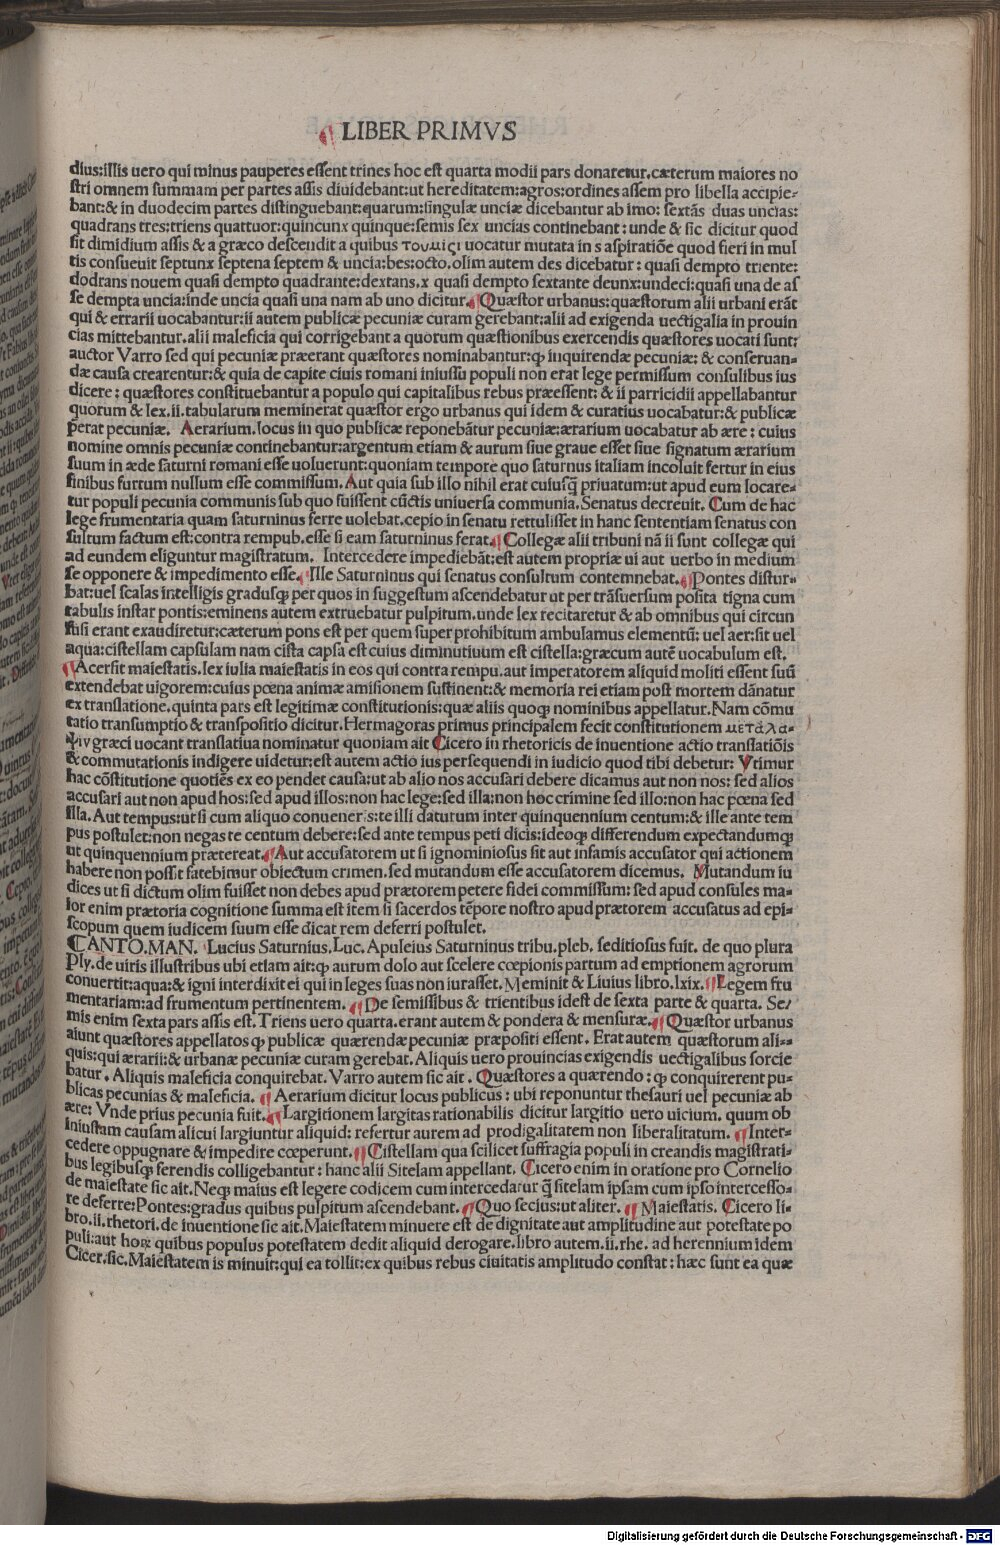 LIBER PRIMVS
dius:illis uero qui minus pauperes essent trines hoc est quarta modii pars donaretur.cæterum maiores no
stri omnem summam per partes assis diuidebant:ut hereditatem:agros:ordines assem pro libella accipie-
bant:& in duodecim partes distinguebant:quarum:singulæ unciæ dicebantur ab imo: sextãs duas uncias:
quadrans tres:triens quattuor:quincunx quinque:semis sex uncias continebant: unde & sic dicitur quod
sit dimidium assis & a græco descendit a quibus τουμιςι uocatur mutata in s aspiratiõe quod fieri in mul
tis consueuit septunx septena septem & uncia:bes:octo.olim autem des dicebatur: quasi dempto triente:
dodrans nouem quasi dempto quadrante:dextans.x quasi dempto sextante deunx:undeci:quasi una de as
se dempta uncia:inde uncia quasi una nam ab uno dicitur. Quæstor urbanus:quæstorum alii urbani erãt
qui & errarii uocabantur:ii autem publicæ pecuniæ curam gerebant:alii ad exigenda uectigalia in prouin
cias mittebantur.alii maleficia qui corrigebant a quorum quæstionibus exercendis quæstores uocati sunt:
auctor Varro sed qui pecuniæ præerant quæstores nominabantur:ꝙ inquirendæ pecuniæ: & conseruan-
dæ causa crearentur:& quia de capite ciuis romani iniussu populi non erat lege permissum consulibus ius
dicere: quæstores constituebantur a populo qui capitalibus rebus præessent: & ii parricidii appellabantur
quorum & lex.ii.tabularum meminerat quæstor ergo urbanus qui idem & curatius uocabatur:& publicæ
perat pecuniæ. Aerarium.locus in quo publicæ reponebãtur pecuniæ:ærarium uocabatur ab ære: cuius
nomine omnis pecuniæ continebantur:argentum etiam & aurum siue graue esset siue signatum ærarium
suum in æde saturni romani esse uoluerunt:quoniam tempore quo saturnus italiam incoluit fertur in eius
finibus furtum nullum esse commissum. Aut quia sub illo nihil erat cuiusq̃ priuatum:ut apud eum locare-
tur populi pecunia communis sub quo fuissent cũctis uniuersa communia. Senatus decreuit. Cum de hac
lege frumentaria quam saturninus ferre uolebat.cepio in senatu rettulisset in hanc sententiam senatus con
sultum factum est:contra rempub.esse si eam saturninus ferat. Collegæ alii tribuni nã ii sunt collegæ qui
ad eundem eliguntur magistratum. Intercedere impediebãt:est autem propriæ ui aut uerbo in medium
se opponere & impedimento esse. Ille Saturninus qui senatus consultum contemnebat. Pontes distur-
bat:uel scalas intelligis gradusq; per quos in suggestum ascendebatur ut per trãsuersum posita tigna cum
tabulis instar pontis:eminens autem extruebatur pulpitum.unde lex recitaretur & ab omnibus qui circun
fusi erant exaudiretur:cæterum pons est per quem super prohibitum ambulamus elementũ: uel aer:sit uel
aqua:cistellam capsulam nam cista capsa est cuius diminutiuum est cistella:græcum autẽ uocabulum est.
Acersit maiestatis.lex iulia maiestatis in eos qui contra rempu.aut imperatorem aliquid moliti essent suũ
extendebat uigorem:cuius pœna animæ amisionem sustinent:& memoria rei etiam post mortem dãnatur
ex translatione.quinta pars est legitimæ constitutionis:quæ aliis quoq; nominibus appellatur.Nam cõmu
tatio transumptio & transpositio dicitur.Hermagoras primus principalem fecit constitutionem μετάλα-
ψιν græci uocant translatiua nominatur quoniam ait Cicero in rhetoricis de inuentione actio translatiõis
& commutationis indigere uidetur:est autem actio ius persequendi in iudicio quod tibi debetur: Vtimur
hac cõstitutione quotiẽs ex eo pendet causa:ut ab alio nos accusari debere dicamus aut non nos: sed alios
accusari aut non apud hos:sed apud illos:non hac lege:sed illa:non hoc crimine sed illo:non hac pœna sed
illa. Aut tempus:ut si cum aliquo conueneris:te illi daturum inter quinquennium centum:& ille ante tem
pus postulet:non negas te centum debere:sed ante tempus peti dicis:ideoq; differendum expectandumq;
ut quinquennium prætereat. Aut accusatorem ut si ignominiosus sit aut infamis accusator qui actionem
habere non possit fatebimur obiectum crimen.sed mutandum esse accusatorem dicemus. Mutandum iu
dices ut si dictum olim fuisset non debes apud prætorem petere fidei commissum: sed apud consules ma-
ior enim prætoria cognitione summa est item si sacerdos tẽpore nostro apud prætorem accusatus ad epi-
scopum quem iudicem suum esse dicat rem deferri postulet.
CANTO.MAN. Lucius Saturnius.Luc. Apuleius Saturninus tribu.pleb. seditiosus fuit. de quo plura
Ply.de uiris illustribus ubi etiam ait:ꝙ aurum dolo aut scelere cœpionis partum ad emptionem agrorum
conuertit:aqua:& igni interdixit ei qui in leges suas non iurasset. Meminit & Liuius libro.lxix. Legem fru
mentariam:ad frumentum pertinentem. De semissibus & trientibus idest de sexta parte & quarta. Se-
mis enim sexta pars assis est. Triens uero quarta.erant autem & pondera & mensuræ. Quæstor urbanus
aiunt quæstores appellatos ꝙ publicæ quærendæ pecuniæ præpositi essent. Erat autem quæstorum ali-
quis:qui ærarii:& urbanæ pecuniæ curam gerebat. Aliquis uero prouincias exigendis uectigalibus sorcie
batur. Aliquis maleficia conquirebat. Varro autem sic ait. Quæstores a quærendo: ꝙ conquirerent pu-
blicas pecunias & maleficia. Aerarium dicitur locus publicus: ubi reponuntur thesauri uel pecuniæ ab
ære: Vnde prius pecunia fuit. Largitionem largitas rationabilis dicitur largitio uero uicium. quum ob
iniustam causam alicui largiuntur aliquid: refertur aurem ad prodigalitatem non liberalitatum. Inter-
cedere oppugnare & impedire cœperunt. Cistellam qua scilicet suffragia populi in creandis magistrati-
bus legibusq; ferendis colligebantur: hanc alii Sitelam appellant. Cicero enim in oratione pro Cornelio
de maiestate sic ait. Neq; maius est legere codicem cum intercedatur q̃ sitelam ipsam cum ipso intercesso-
re deferre:Pontes:gradus quibus pulpitum ascendebant. Quo secius:ut aliter. Maiestatis. Cicero li-
bro.ii.rhetori.de inuentione sic ait.Maiestatem minuere est de dignitate aut amplitudine aut potestate po
puli:aut hoꝝ quibus populus potestatem dedit aliquid derogare.libro autem.ii.rhe. ad herennium idem
Cicer.sic.Maiestatem is minuit:qui ea tollit:ex quibus rebus ciuitatis amplitudo constat: hæc sunt ea quæ
Digitalisierung gefördert durch die Deutsche Forschungsgemeinschaft - DFG